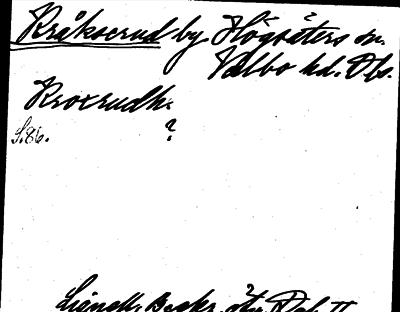 Kråkserud by Högsäters sn.
Valbo hd. Dls.
Kroxrudh.
S. 86. ?
Lignell, Beskr. öfv. Dal. II